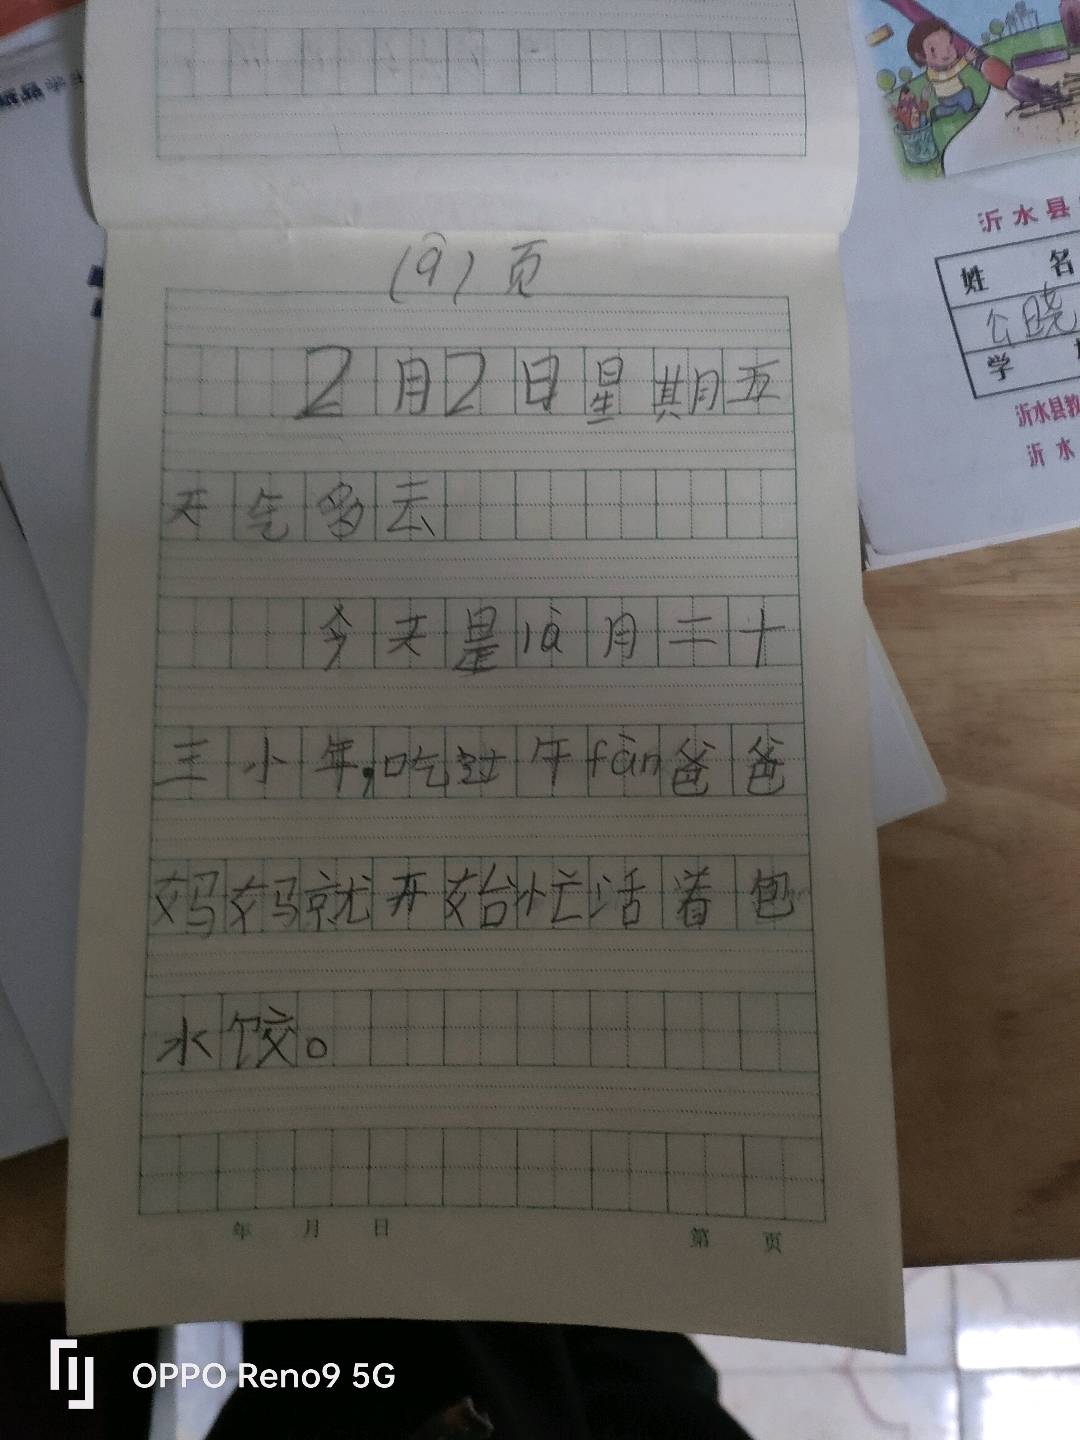 (9)页
2月2日星期五
天气多云
今天是là月二十
三小年,吃过午fàn爸爸
妈妈就开始忙活着包
水饺。
年 月 日 第 页
沂水县
姓名
公晓
学
沂水县教
沂水
OPPO Reno9 5G